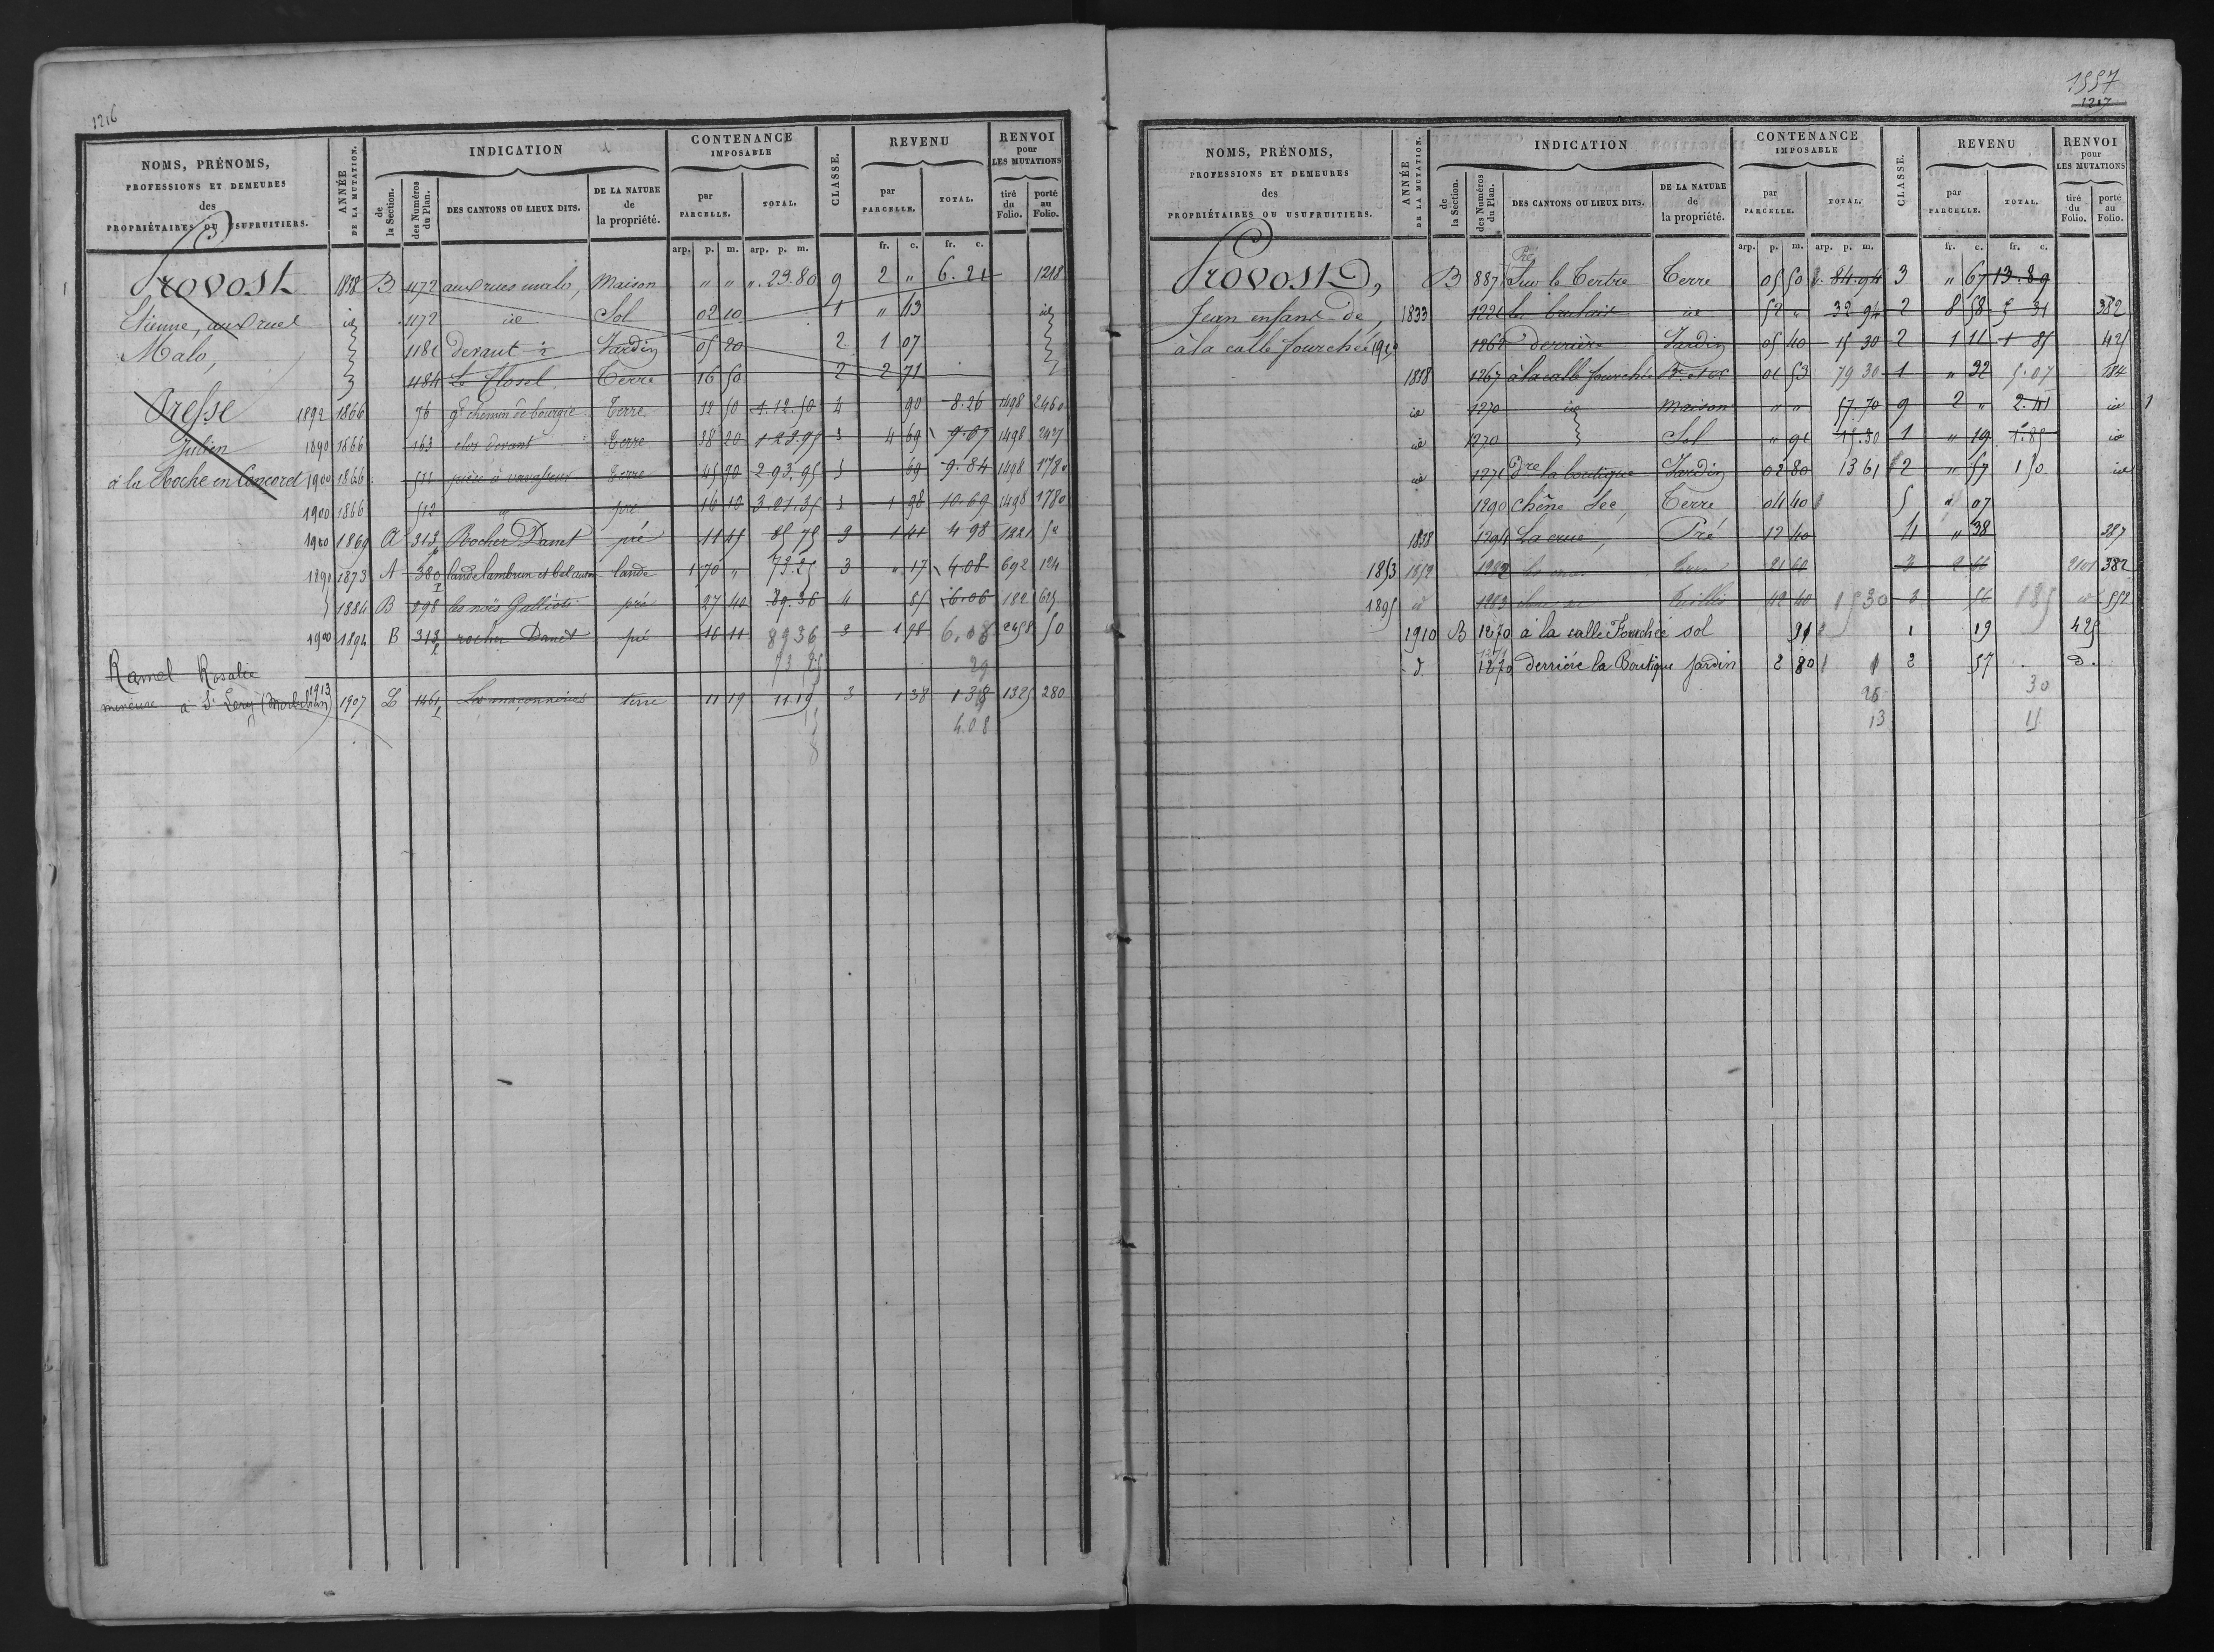 1216
NOMS, PRÉNOMS, PROFESSIONS ET DEMEURES des PROPRIÉTAIRES OU USUFRUITIERS.
ANNÉE DE LA MUTATION.
INDICATION
de la Section.
des Numéros du Plan.
DES CANTONS OU LIEUX DITS.
DE LA NATURE de la propriété.
CONTENANCE IMPOSABLE
par PARCELLE.
TOTAL.
CLASSE.
REVENU
par PARCELLE.
TOTAL.
RENVOI pour LES MUTATIONS
tiré du Folio.
porté au Folio.
arp. p. m. arp. p. m. fr. c. fr. c.
Provost 1838 B 1172 aux rues malo, Maison " " ". 23.80 9 2 " 6.21 1218
Etienne, aux rues id 1172 id Sol 02 10 1 " 43 id
Malo, 1181 devant Jardin 05 20 2 1 07
1184 Le Closel Terre 16 50 2 2 71
Presse 1892 1866 76 gd chemin de bourgie Terre 12 50 1.12.50 4 90 8.26 1498 2460
Julien 1890 1866 163 clos devant Terre 38 20 3 4 69 1498 2427
à la Roche en Concoret 1900 1866 511 Terre 45 90 2.93.95 5 69 9.84 1498 1780
1900 1866 512 pré 16 10 3.01.35 1 98 10.69 1498 1780
1900 1869 A 313 Rocher Danet pré 11 45 85 75 3 1 41 4 98 1221 50
1890 1873 A 380 lande lambrun et bel lande 1 70 " 73.25 3 " 17 4.08 692 124
1884 B 898 les noës Galliots pré 27 40 89.36 4 85 6.06 182 625
1900 1894 B 313 rocher Danet pré 16 11 8936 3 1 98 6.18 2458 50
73 25 29
Ramel Rosalie
mineure à St Lery (Morbihan) 1913 1907 L 1461 Les maçonneries terre 11 19 11.19 3 1 38 1 38 1325 280
4.08
1557
1217
NOMS, PRÉNOMS, PROFESSIONS ET DEMEURES des PROPRIÉTAIRES OU USUFRUITIERS.
ANNÉE DE LA MUTATION.
INDICATION
de la Section.
des Numéros du Plan.
DES CANTONS OU LIEUX DITS.
DE LA NATURE de la propriété.
CONTENANCE IMPOSABLE
par PARCELLE.
TOTAL.
CLASSE.
REVENU
par PARCELLE.
TOTAL.
RENVOI pour LES MUTATIONS
tiré du Folio.
porté au Folio.
arp. p. m. arp. p. m. fr. c. fr. c.
Pré
Provost, B 887 Sur le Tertre Terre 05 50 84.94 3 " 67 13.89
Jean enfant de, 1833 1221 le brulais id 52 " 32 94 2 8 58 5 31 382
à la calle fourchée 1910 1261 derrière Jardin 05 40 15 30 2 1 11 1 85 425
1838 1267 à la calle fourchée 01 53 79 30 1 " 32 5.07 184
id 1270 id Maison " " 57.70 9 2 " 2.41 id
id 1270 Sol " 91 15.30 1 " 19 1.85 id
id 1271 Dre la boutique Jardin 02 80 13 61 2 " 57 1 50 id
1290 chêne sec, Terre 04 40 5 " 07
1838 1294 La crue, Pré 12 40 4 " 38 387
1853 1852 1282 Terre 21 60 3 2 2101 382
1895 id 1283 42 40 1530 3 56 185 id 552
1910 B 1270 à la calle Fourchée sol 91 1 19 425
d 1271 1270 derrière la Boutique jardin 2 80 2 57 D.
26 30
13 15